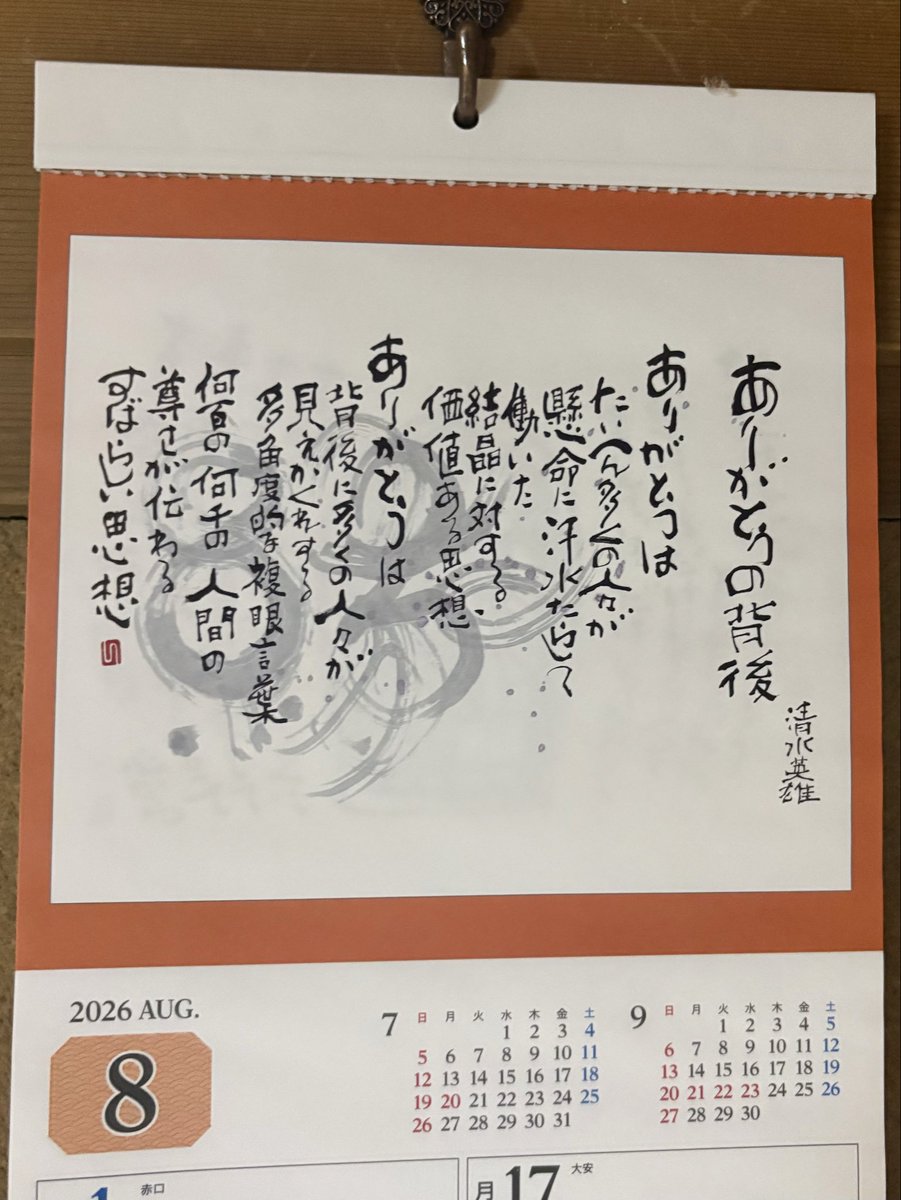 ありがとうの背後
清水英雄
ありがとうは
たいへん多くの人々が
懸命に汗水たらして
働いた
結晶に対する
価値ある思想
ありがとうは
背後に多くの人々が
見えかくれする
多角度的な複眼言葉
何百の何千の人間の
尊さが伝わる
すばらしい思想
2026 AUG.
8
7
日 月 火 水 木 金 土
1 2 3 4
5 6 7 8 9 10 11
12 13 14 15 16 17 18
19 20 21 22 23 24 25
26 27 28 29 30 31
9
日 月 火 水 木 金 土
1 2 3 4 5
6 7 8 9 10 11 12
13 14 15 16 17 18 19
20 21 22 23 24 25 26
27 28 29 30
1 赤口
月 17 大安